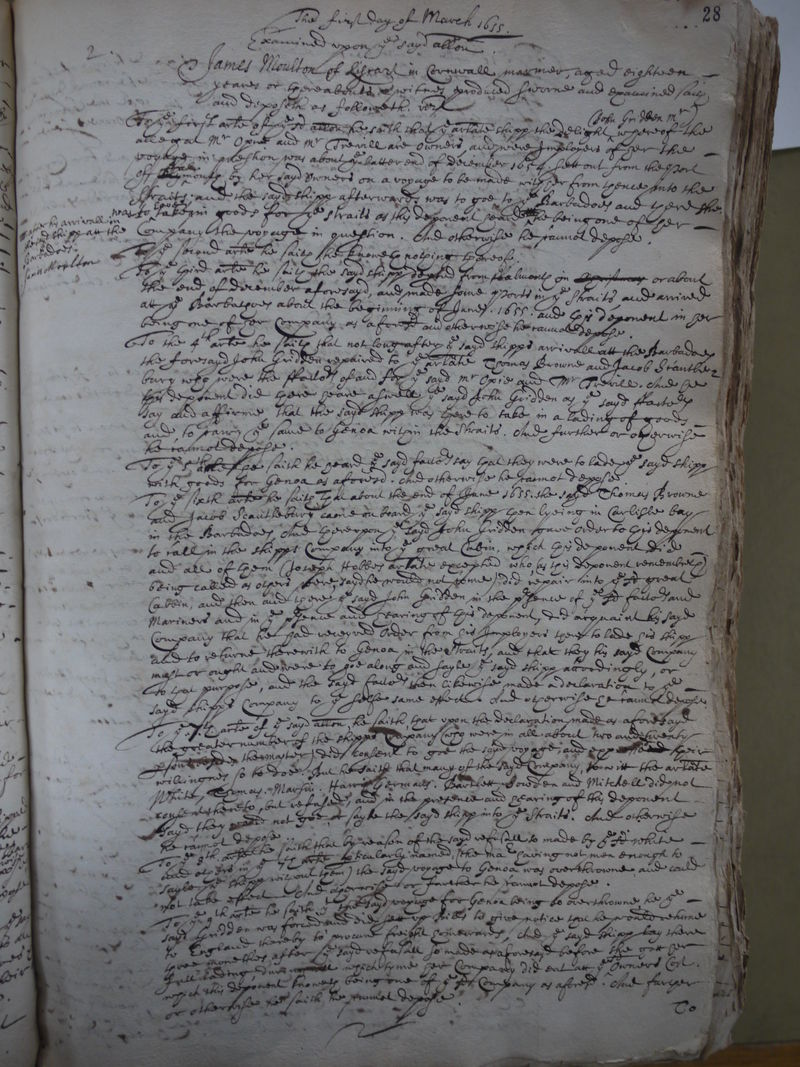 28
The first day of March 1655.
Examined upon ye sayd allon.
2.
James Moulton of Liscart in Cornwall marriner, aged eighteen
yeares or thereabouts a witnes produced sworne and examined saith
and deposeth as followeth vizt
To ye first arle of ye sd allon he saith that ye arlate shipp the delight whereof the
John Gridden Mr
allegat Mr Opie and Mr Trevill are Owners and were Imployers of her the
voyage in question was about ye latter end of december 1654 sett out from the Port
of Plymouth by her sayd Owners on a voyage to be made with her from thence into the
Straits, and the sayd shipp afterwards was to goe to ye Barbadoes and there she
was to take in goods for ye Straits as this deponent heard he being one of her
after his arrivall in
the sd shipp att the
Barbadoes.
James Moulton
Company the voyage in question. And otherwise he cannot depose.
To ye second arle he saith he knoweth nothing thereof.
To ye third arle he saith the sayd shipp departed from Falmouth on or about
the end of december aforesayd, and made some Ports in ye Straits and arrived
att ye Barbadoes about the beginning of June 1655. and this deponent in her
being one of her Company as aforesd and otherwise he cannot depose.
To the 4th arle he saith that not long after ye sayd shipps arrivall att the Barbadoes
the foresayd John Gridden repaired to ye arlate Thomas Browne and Jacob Scauther
bury who were the ffactors of and for ye sayd Mr Opie and Mr Trevill. And he
this deponent did there heare aswell ye sayd John Gridden as ye sayd ffactors
say and affirme that the sayd shipp was there to take in a lading of goods
and to carry ye same to Genoa within the Straits. And further or otherwise
he cannot depose.
To ye 5th arle he saith he heard ye sayd factors say that they were to lade ye sayd shipp
with goods for Genoa as aforesd. And otherwise he cannot depose.
To ye sixth arle he saith That about the end of June 1655. the sayd Thomas Browne
and Jacob Scautherbury came on board ye sayd shipp then lyeing in Carlisle bay
in the Barbadoes And thereupon ye sayd John Gridden gave order to this deponent
to call in the shipps Company into ye great Cabin, which this deponent did
and all of them (Joseph Hobbes arlate excepted who, as this deponent remembreth
being called as others were sayd he would not come) did repair into ye sd great
Cabbin, and then and there ye sayd John Gridden in the presence of ye sd factors and
Mariners and in ye presence and hearing of this deponent, did acquaint his sayd
Company that he had received order from his Imployers there to lade his shipp
and to returne therewith to Genoa in the Straits, and that they his sayd Company
must or ought and were to goe along and sayle ye sayd shipp accordingly, or
to that purpose, and the sayd factors then likewise made a declaration to ye
sayd shipps Company to ye selfe same effect. And otherwise he cannot depose
To ye 7th arle of ye sayd allon, he saith, that upon the declaration made as aforesayd
the greater number of the shipps Company (who were in all about two and twenty
the master) did consent to goe the sayd voyage, and their
willingnes so to doe. But he saith that many of the sayd Company, to witt the arlate
White, Thomas Marsh, Harry Germaes, Bartlett Bowden and Mitchell did not
consent thereto, but refused, and in the presence and hearing of this deponent
sayd they would not goe, or sayle the sayd shipp into ye Straits. And otherwise
he cannot depose.
To ye 8th arle he saith that by reason of the sayd refusall so made by ye sd White
and others in ye 7th arle perticularly named, (the Mar having not men enough to
sayle ye shipp without them) the sayd voyage to Genoa was overthrowne and could
not take effect. And otherwise or further he cannot depose.
To ye 9th arle he saith yt the sayd voyage for Genoa being so overthrowne he ye
sayd Gridden was forced and did sett up bills to give notice that he would returne
to England thereby to procure freight homewards, And ye sayd shipp lay there
three moneths after ye sayd refusall so made as aforesayd before she gott her
full lading during which tyme her Company did eat att ye Owners Cost.
which this deponent knoweth being one of ye sd Company as aforesd. And further
or otherwise he saith he cannot depose.
To